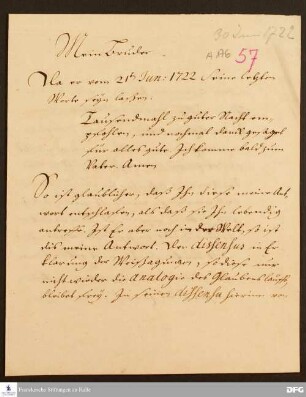 30 Jun 1722
A 176
57
Mein Bruder.
Da er vom 21t Jun: 1722 seine letzten
Worte seyn laßen.
Tausendmahl zu guter Nacht em,
pfohlen, und nochmal danck gesagt
für alles gute. Ich komme bald zum
Vater. Amen
So ist glaublicher, daß Ihn diese meine Ant,
wort entschlafen, als daß sie Ihn lebendig
antreffe. Ist Er aber noch in der Welt, so ist
dis meine Antwort. Der dissensus in Er
klärung der Weissagungen, so diese nur
nicht wieder die Analogie des Glaubens laufft,
bleibet frey. In seinen dissensu hierinn
Franckesche Stiftungen zu Halle
DFG